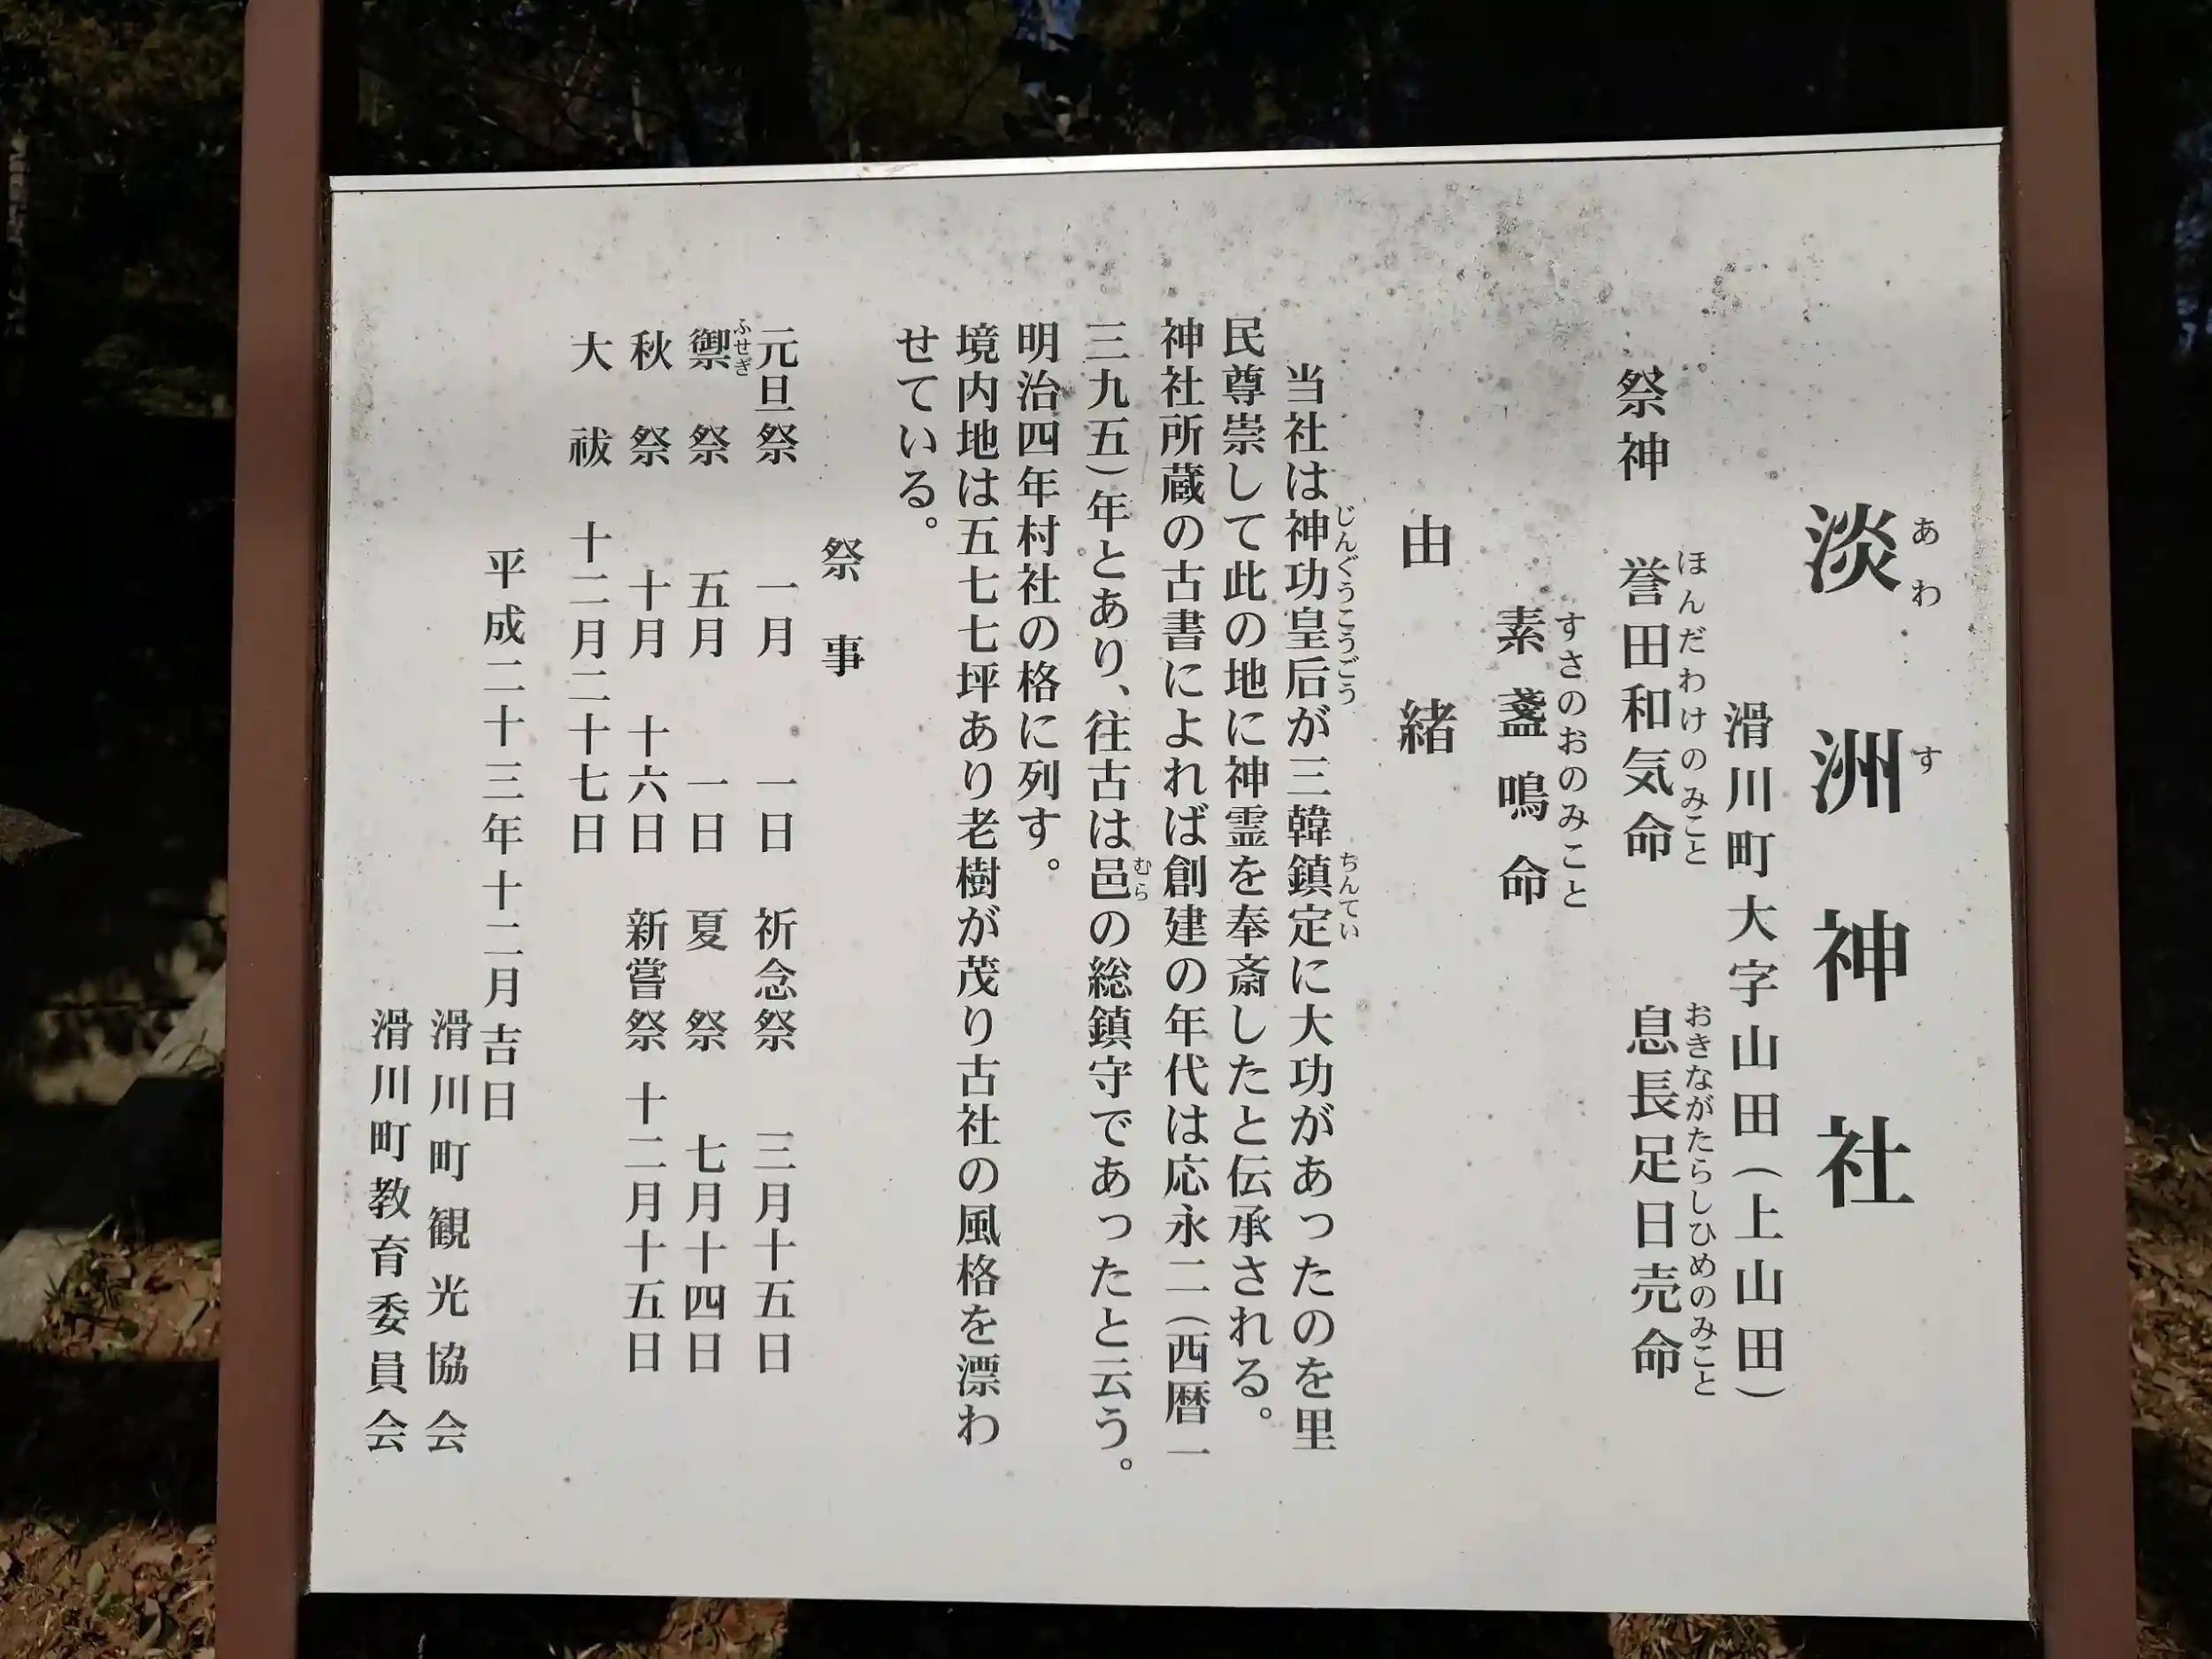 淡洲神社
あわす
滑川町大字山田（上山田）
祭神　誉田和気命　息長足日売命
ほんだわけのみこと　おきながたらしひめのみこと
素盞鳴命
すさのおのみこと
由緒
当社は神功皇后が三韓鎮定に大功があったのを里
じんぐうこうごう　ちんてい
民尊崇して此の地に神霊を奉斎したと伝承される。
神社所蔵の古書によれば創建の年代は応永二（西暦一
三九五）年とあり、往古は邑の総鎮守であったと云う。
むら
明治四年村社の格に列す。
境内地は五七七坪あり老樹が茂り古社の風格を漂わ
せている。
祭事
元旦祭　一月　一日　祈念祭　三月十五日
禦祭　五月　一日　夏祭　七月十四日
ふせぎ
秋祭　十月　十六日　新嘗祭　十二月十五日
大祓　十二月二十七日
平成二十三年十二月吉日
滑川町観光協会
滑川町教育委員会